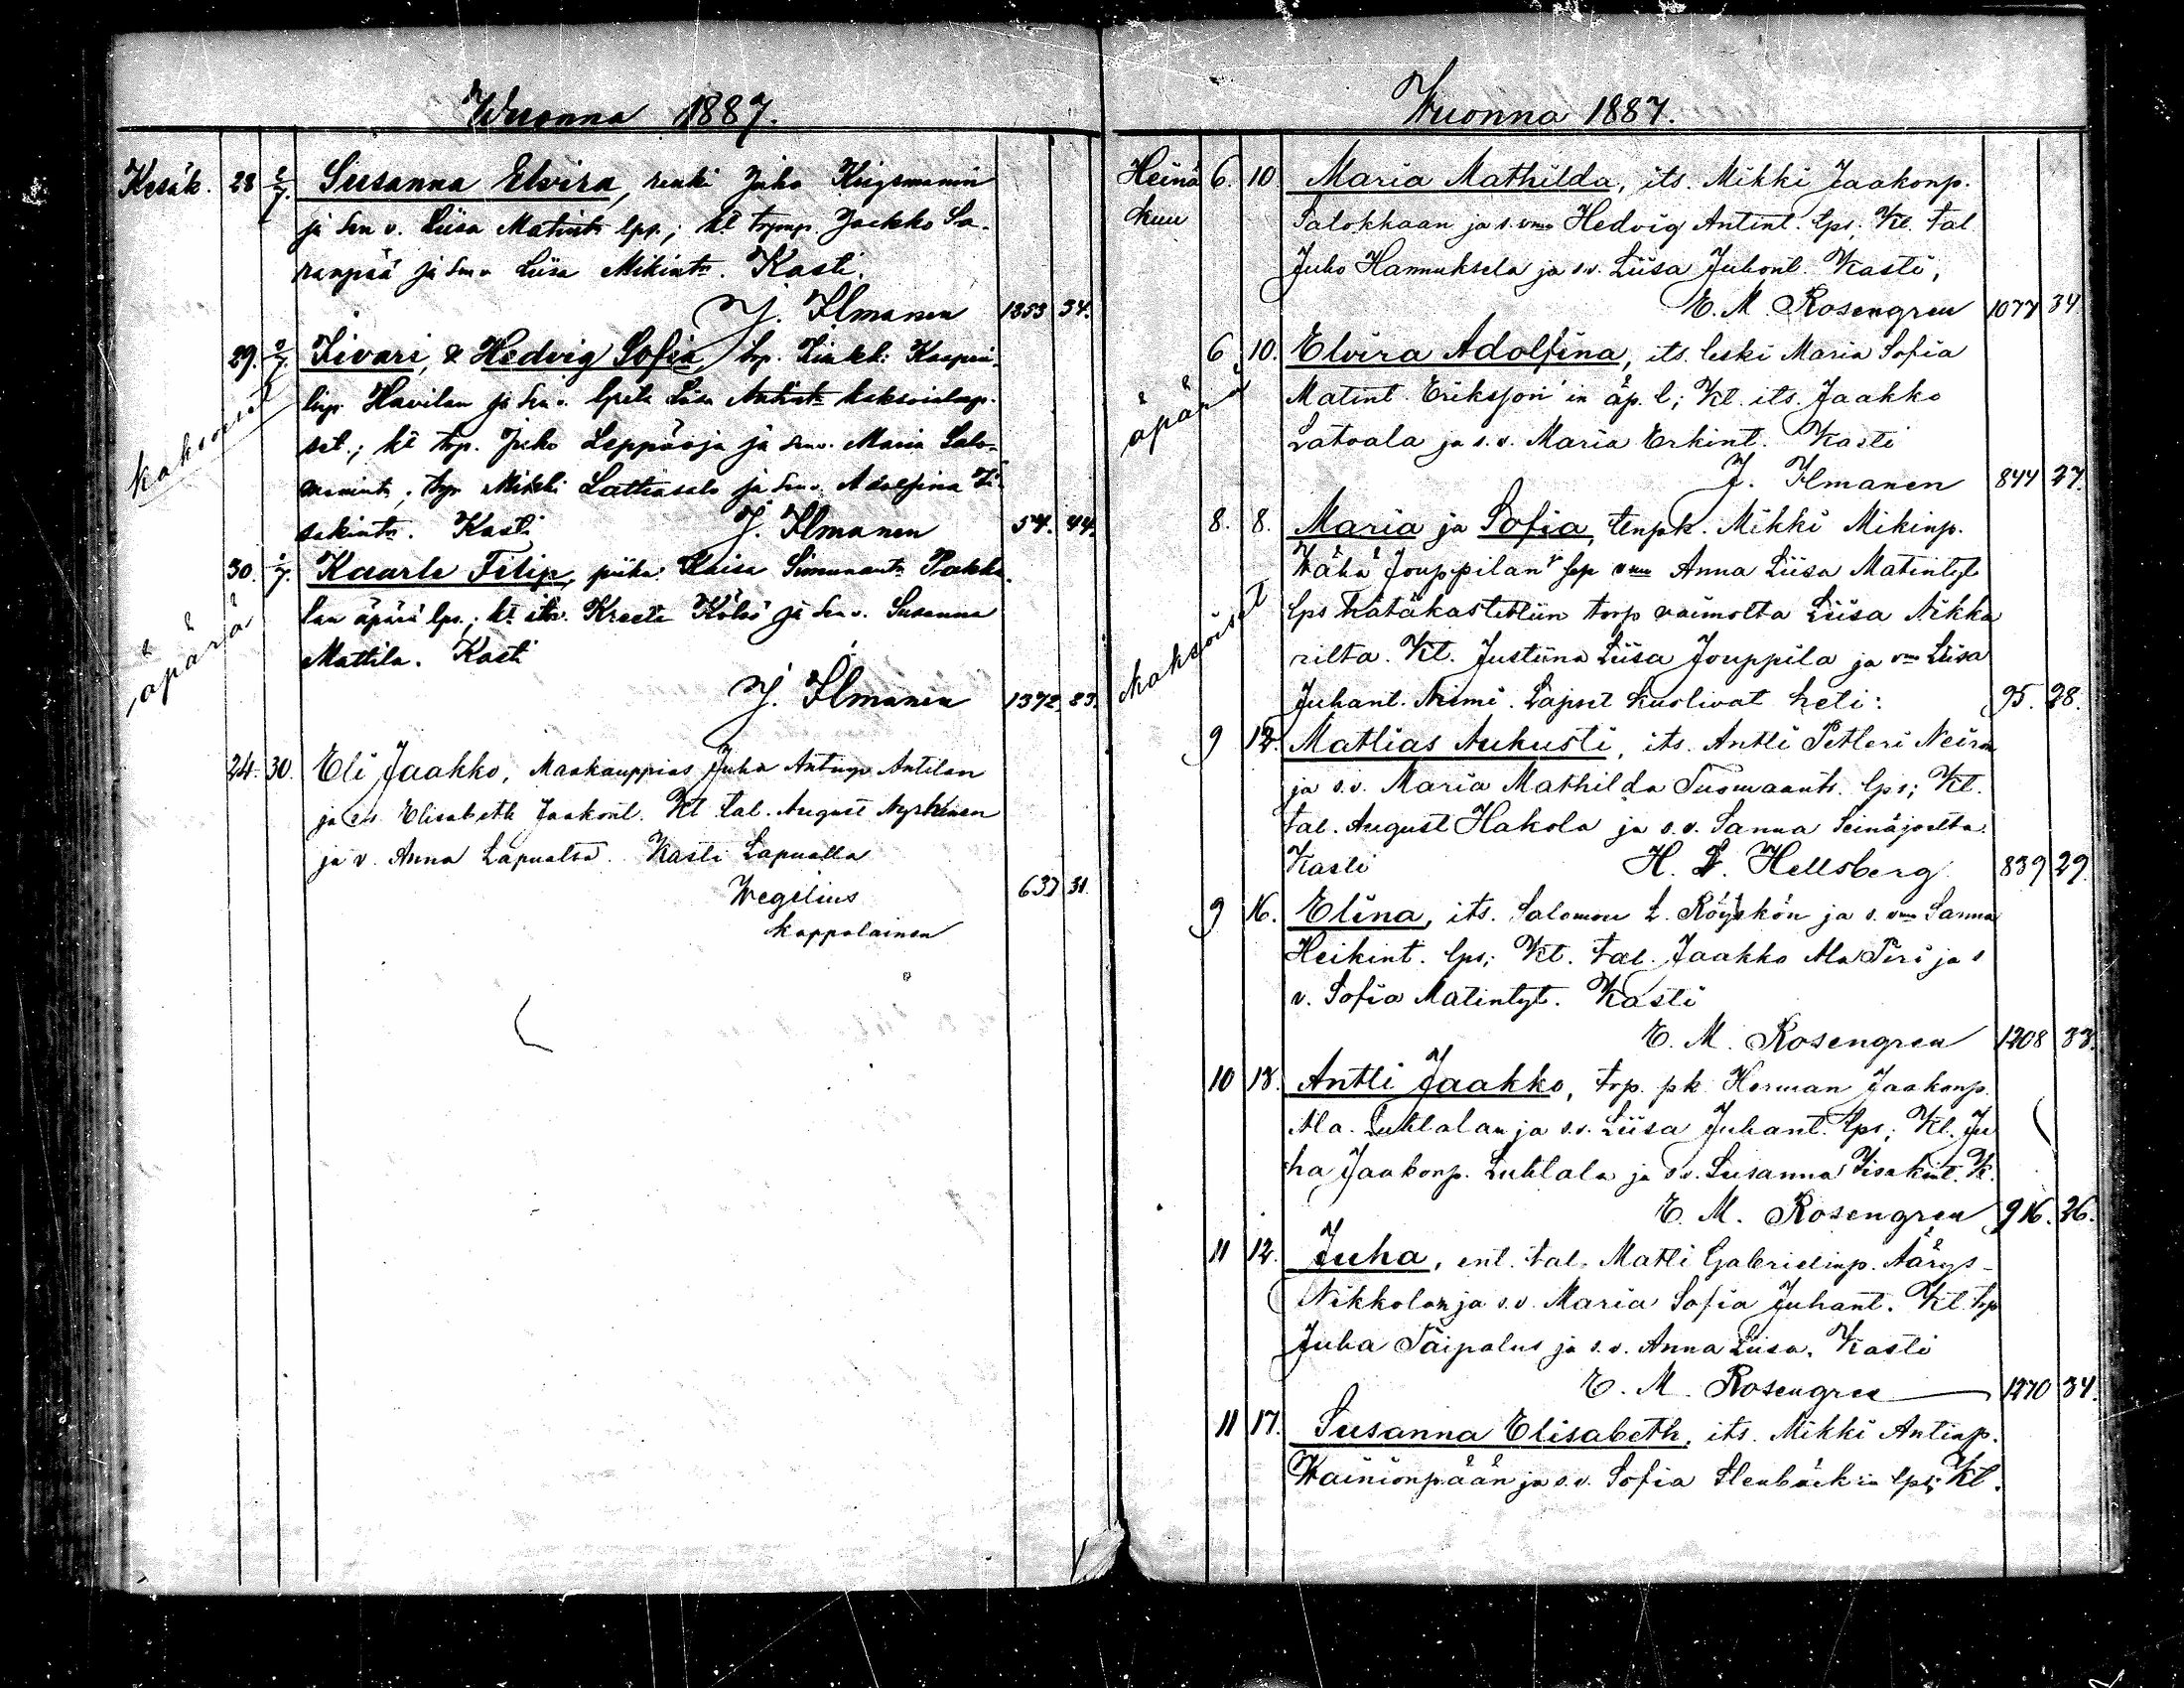 Wuonna 1887.
Kesäk. 28 2/7. Susanna Elvira, renki Juho Krigsmanin
ja sen v. Liisa Matint. lps.; kt. Jaakko Sa-
ranpää ja sen v. Liisa Mikint. Kasti.
J. Ilmanen 1353 34.
29. 2/7. Iivari, & Hedvig Sofia, trp. Kaapri-
linp. Havilan ja sen v. Greta Liisa Antint. kaksoislap-
kaksoiset
set.; kt. trp. Juho Leppäoja ja sen v. Maria Salo-
monint., trp. Mikki Lattiasalo ja sen v. Adolfina Ii-
sakint. Kasti J. Ilmanen 54. 44.
30. 2/7. Kaarle Filip, piika Kaisa Simunant. Pakka-
lan äpärä lps.; kt. Kreeta Kölöö ja sen v. Susanna
äpärä
Mattila. Kasti
J. Ilmanen 1372. 83.
24. 30. Eli Jaakko, Maakauppias Juha Antinp. Antilan
ja v. Elisabeth Jaakont. Kt. tal. August Nyrhinen
ja v. Anna Lapualta. Kasti Lapualla
Wegelius 637 31.
kappalainen
Wuonna 1887.
Heinä 6. 10. Maria Mathilda, its. Mikki Jaakonp.
kuu Salokkaan ja s. vmo Hedvig Antint. lps. Kt. tal.
Juho Hannuksela ja s.v. Liisa Juhont. Kasti,
E. M. Rosengren 1077 34
6 10. Elvira Adolfina, its. leski Maria Sofia
äpärä Matint. Eriksson'in äp. l; Kt. its. Jaakko
Latvala ja s.v. Maria Erkint. Kasti
J. Ilmanen 844 27.
8. 8. Maria ja Sofia, tenpk. Mikki Mikinp.
Wähä Jouppilan ja sen vmo Anna Liisa Matintyt.
kaksoiset lps hätäkastettiin torp vaimolta Liisa Nikka
rilta. Kt. Justiina Liisa Jouppila ja vmo Liisa
Juhant. Niemi. Lapset kuolivat heti: 95. 28.
9 12. Matlias Aukusti, its. Antti Petteri Neiron
ja s.v. Maria Mathilda Tuomaant. lps; Kt.
tal. August Hakola ja s.v. Sanna Seinäjoelta.
Kasti H. L. Hellsberg 839 29.
9 16. Elina, its. Salomon L. Röyskön ja s. vmo Sanna
Heikint. lps; Kt. tal. Jaakko Ala Piri ja s
v. Sofia Matintyt. Kasti
E. M. Rosengren 1208 33.
10 13. Antti Jaakko, trp. pk Herman Jaakonp.
Ala-Luhtalan ja s.v. Liisa Juhant. lps; Kt. Ju
ha Jaakonp. Luhtala ja s.v. Susanna Iisakint. K.
E. M. Rosengren 916. 26.
11 12. Juha, ent. tal. Matti Gabrielinp. Äärys-
Nikkolan ja s.v. Maria Sofia Juhant. Kt. trp
Juha Taipalus ja s.v. Anna Liisa. Kasti
E. M. Rosengren 1270 34.
11 17. Susanna Elisabeth, its. Mikki Antinp.
Wainionpään ja s.v. Sofia Stenbäck'in lps; Kt.